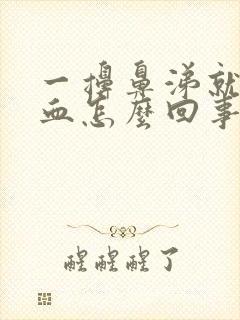 一擤鼻涕就
血怎麼回事
醒醒醒了